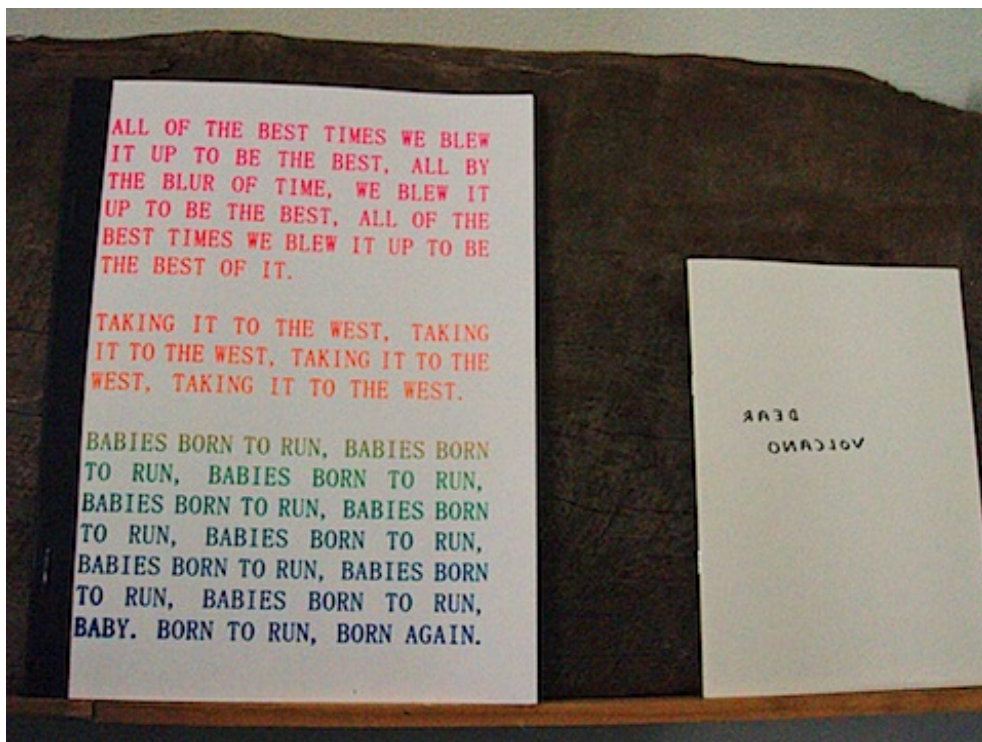 ALL OF THE BEST TIMES WE BLEW
IT UP TO BE THE BEST, ALL BY
THE BLUR OF TIME, WE BLEW IT
UP TO BE THE BEST, ALL OF THE
BEST TIMES WE BLEW IT UP TO BE
THE BEST OF IT.
TAKING IT TO THE WEST, TAKING
IT TO THE WEST, TAKING IT TO THE
WEST, TAKING IT TO THE WEST.
BABIES BORN TO RUN, BABIES BORN
TO RUN, BABIES BORN TO RUN,
BABIES BORN TO RUN, BABIES BORN
TO RUN, BABIES BORN TO RUN,
BABIES BORN TO RUN, BABIES BORN
TO RUN, BABIES BORN TO RUN,
BABY. BORN TO RUN, BORN AGAIN.
DEAR
VOLCANO